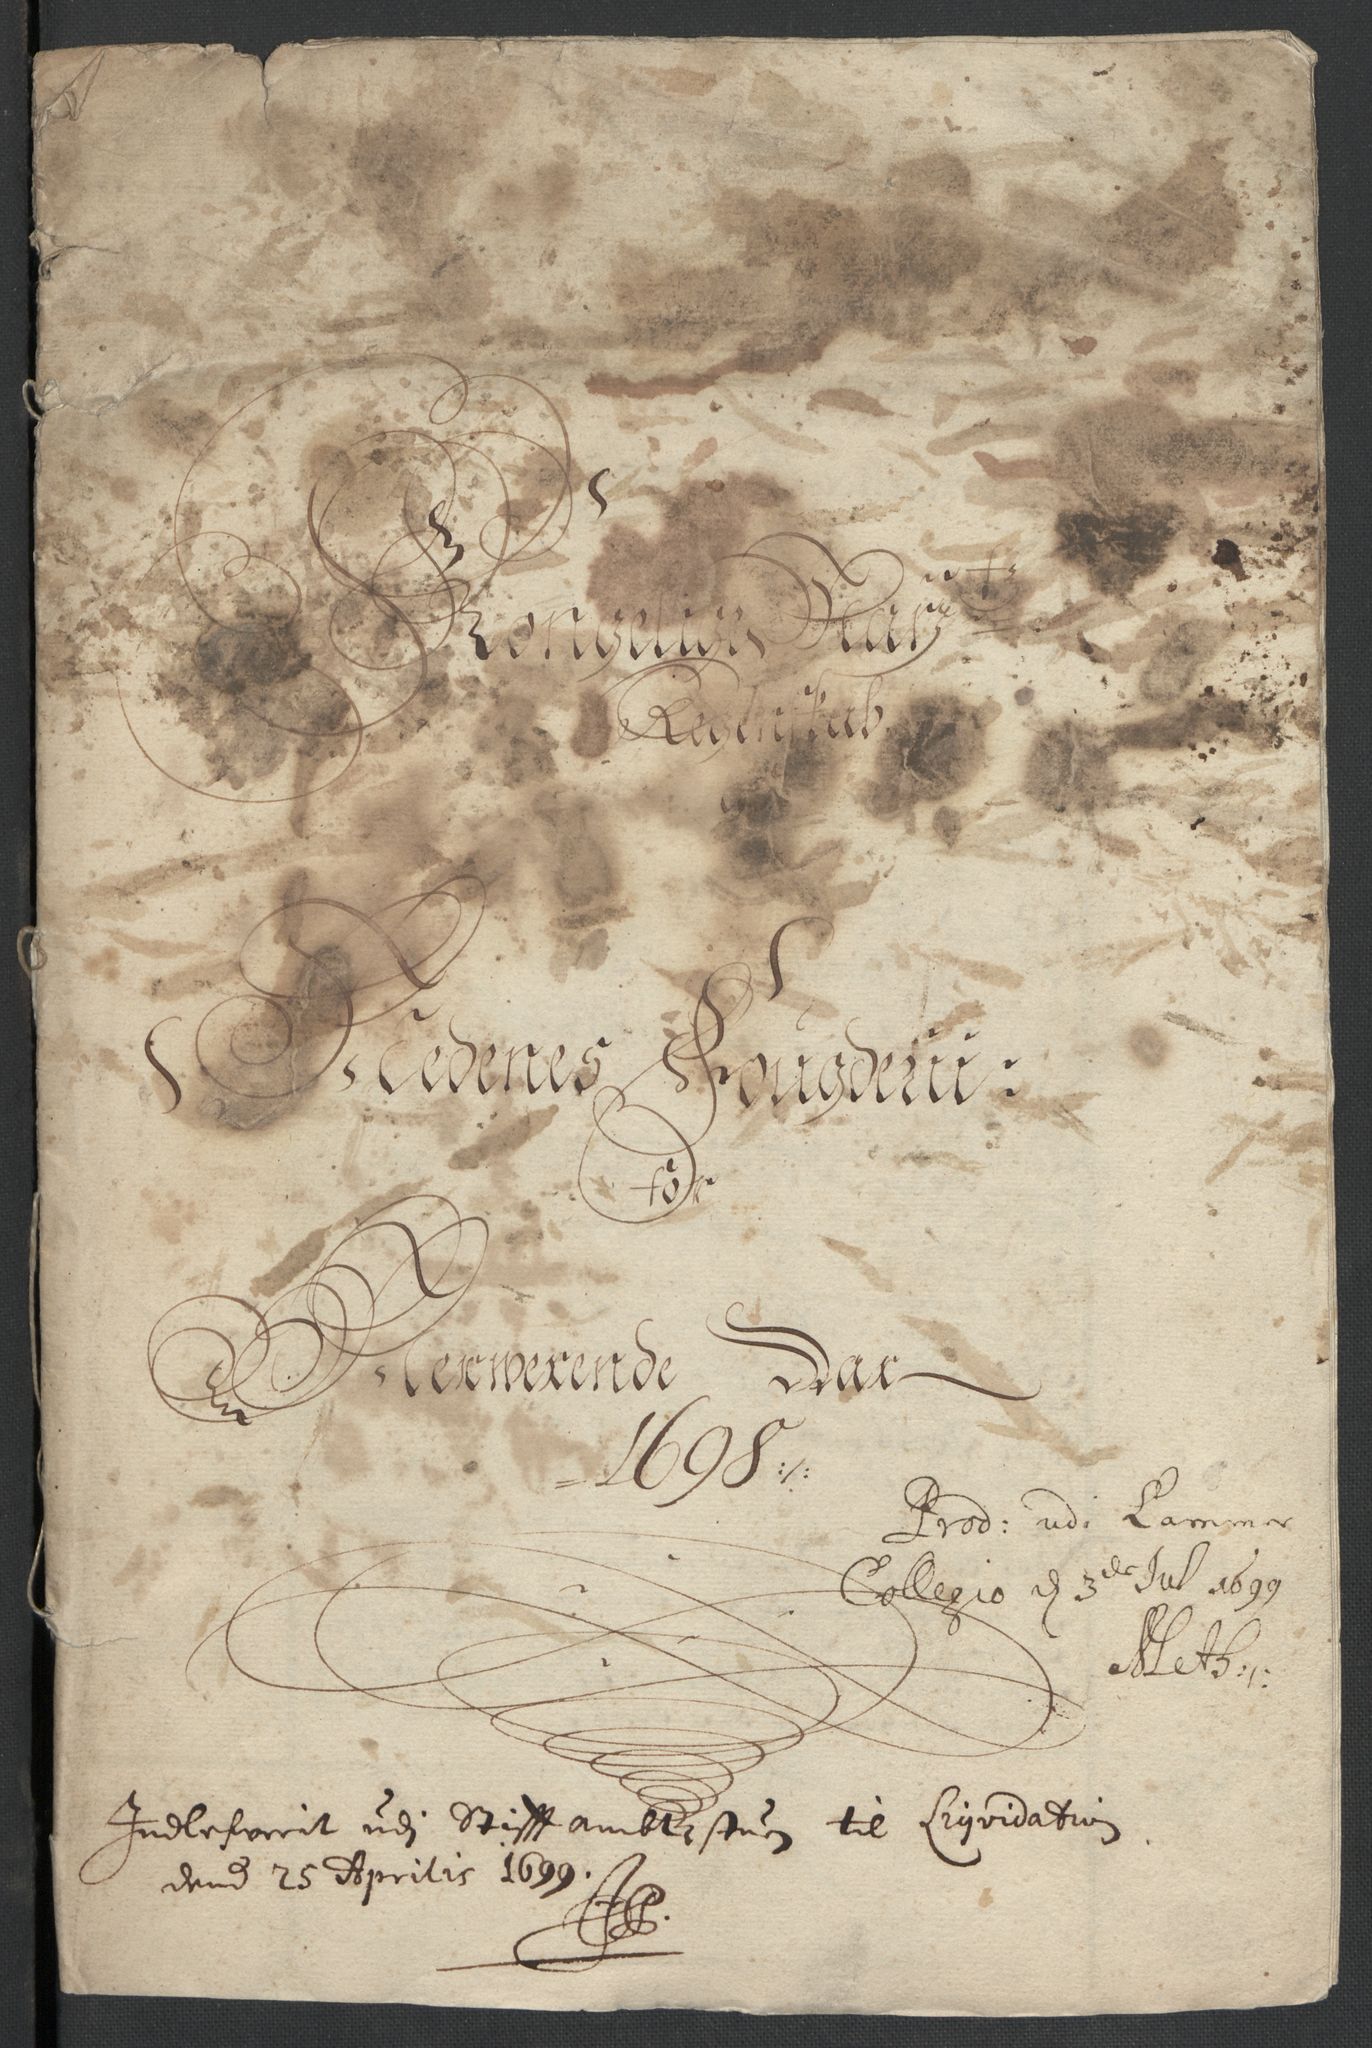 Kongelige May:ts
Regenskab
Nedenes Fougderie:
for
Nerwerende Aar
1698:/:
Prod: udi Cammer
Collegio d 3de Jul 1699
Indlefverit udj Stifftambtstuen til Liqvidation
dend 25 Aprilis 1699.